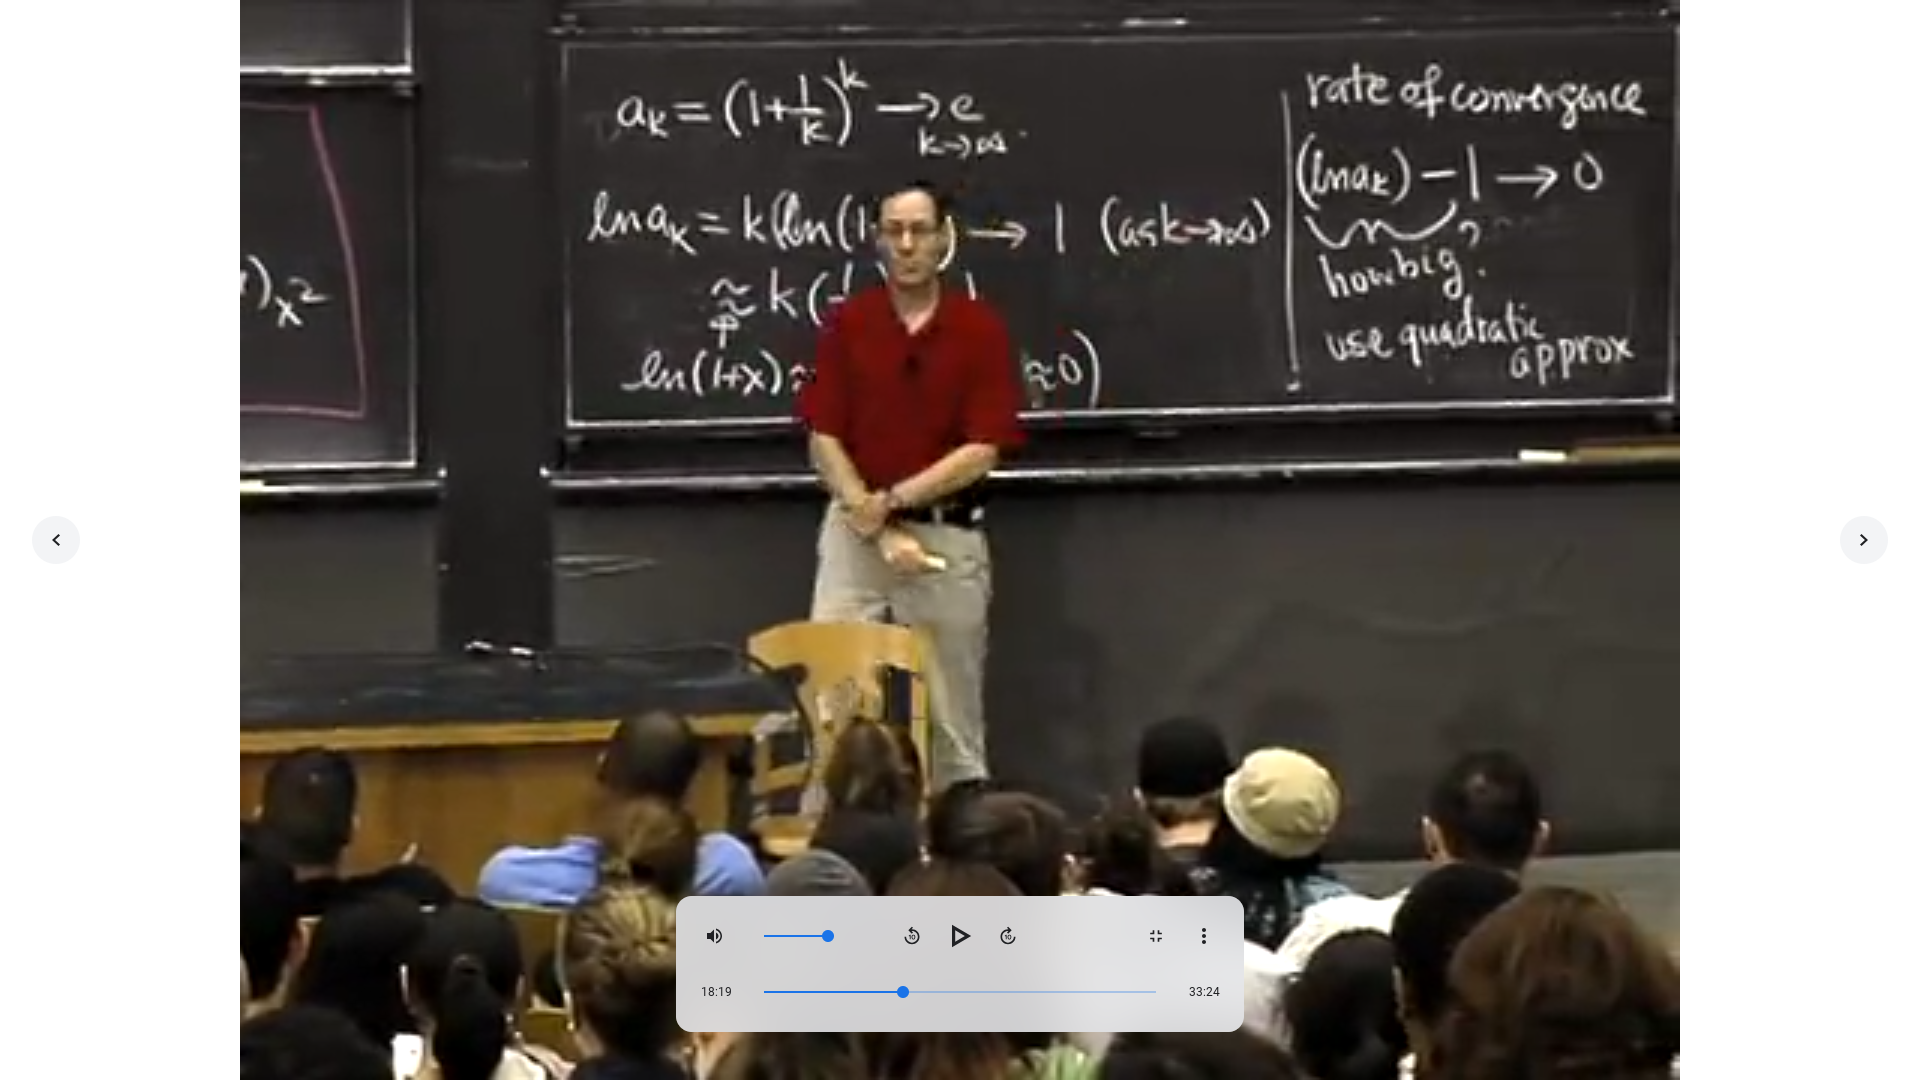 )x²
aₖ = (1+1/k)ᵏ → e
k→∞
ln aₖ = k(ln(1+ ) → 1 (as k→∞)
≈ k(
ln(1+x) ≈ ≈0)
rate of convergence
(ln aₖ) − 1 → 0
how big?
use quadratic
approx
10
10
18:19
33:24